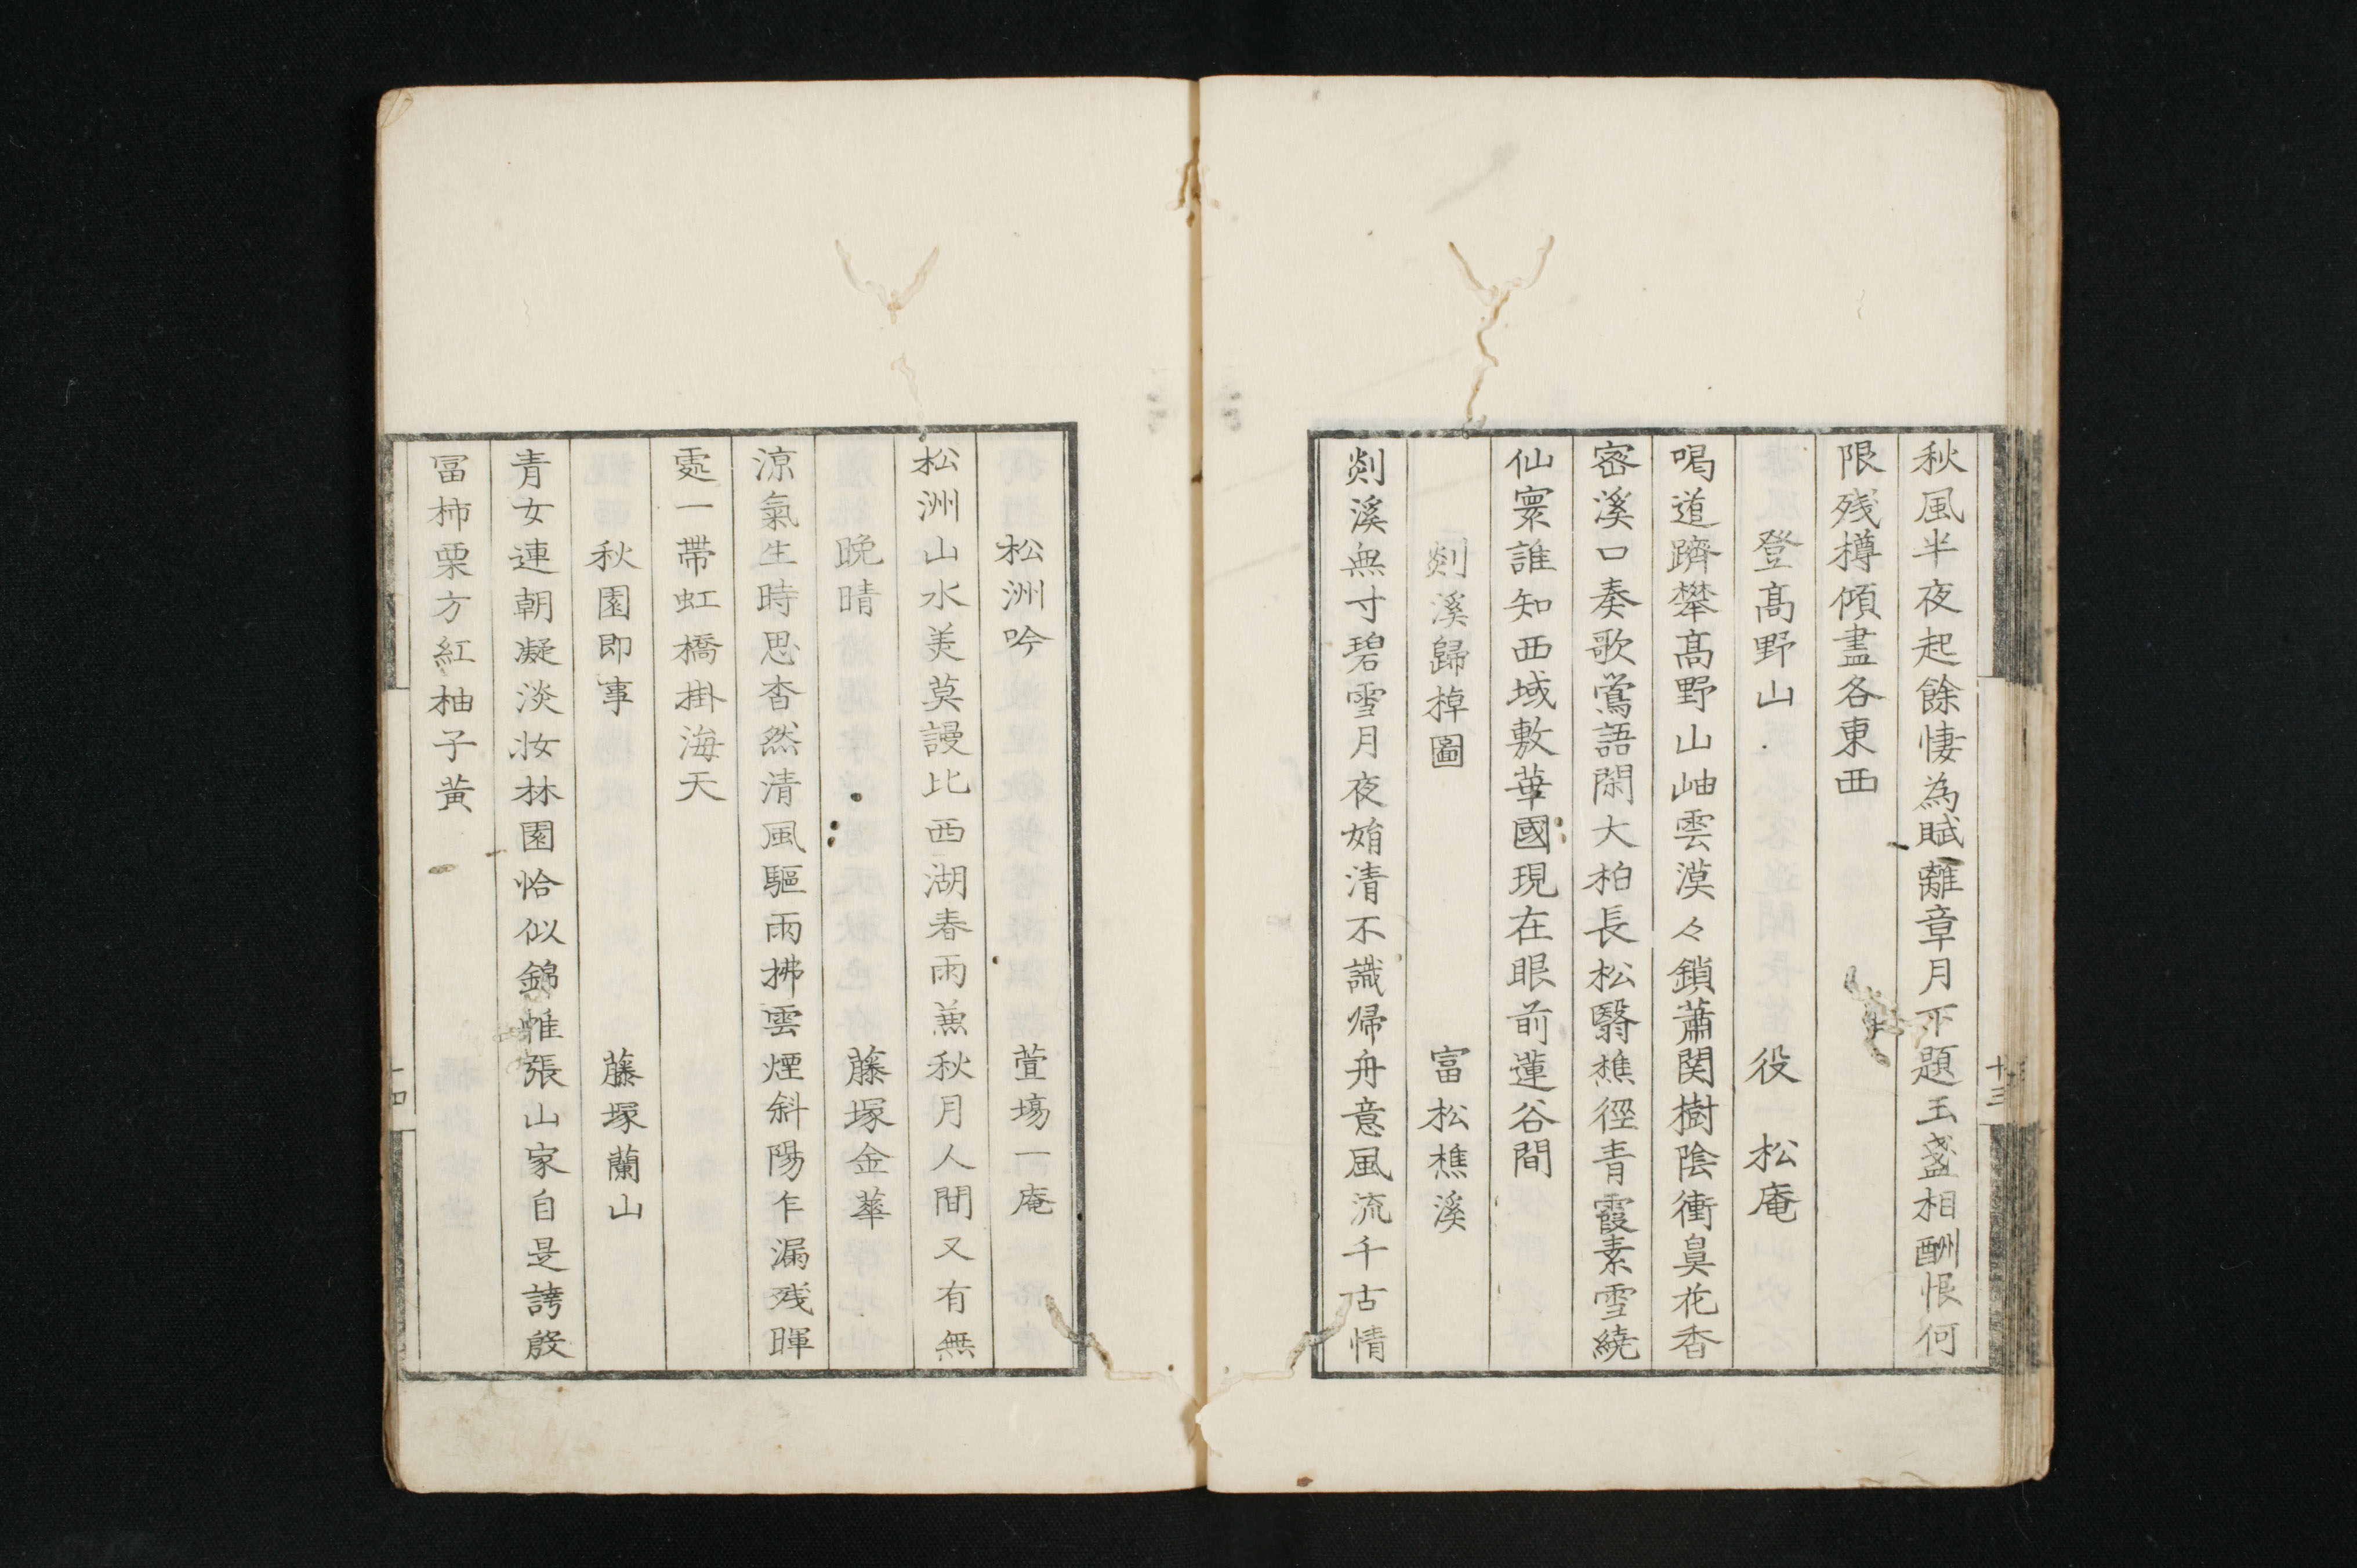 秋風半夜起餘悽為賦離章月下題玉盞相酬恨何
限残樽傾盡各東西
登髙野山
役 松庵
喝道躋攀髙野山岫雲漠々鎖蕭関樹陰衝鼻花香
密溪口奏歌鶯語閑大柏長松翳樵徑青霞素雪繞
仙寰誰知西域敷華國現在眼前蓮谷間
剡溪歸棹圖
富松樵溪
剡溪無寸碧雪月夜媋清不識帰舟意風流千古情
十三
松洲吟
萱場一庵
松洲山水美莫謾比西湖春雨蕉秋月人間又有無
晩晴
藤塚金華
涼氣生時思杳然清風驅雨拂雲煙斜陽乍漏残暉
處一帶虹橋掛海天
秋園即事
藤塚蘭山
青女連朝凝淡妝林園恰似錦帷張山家自是誇殷
冨柿栗方紅柚子黄
十四